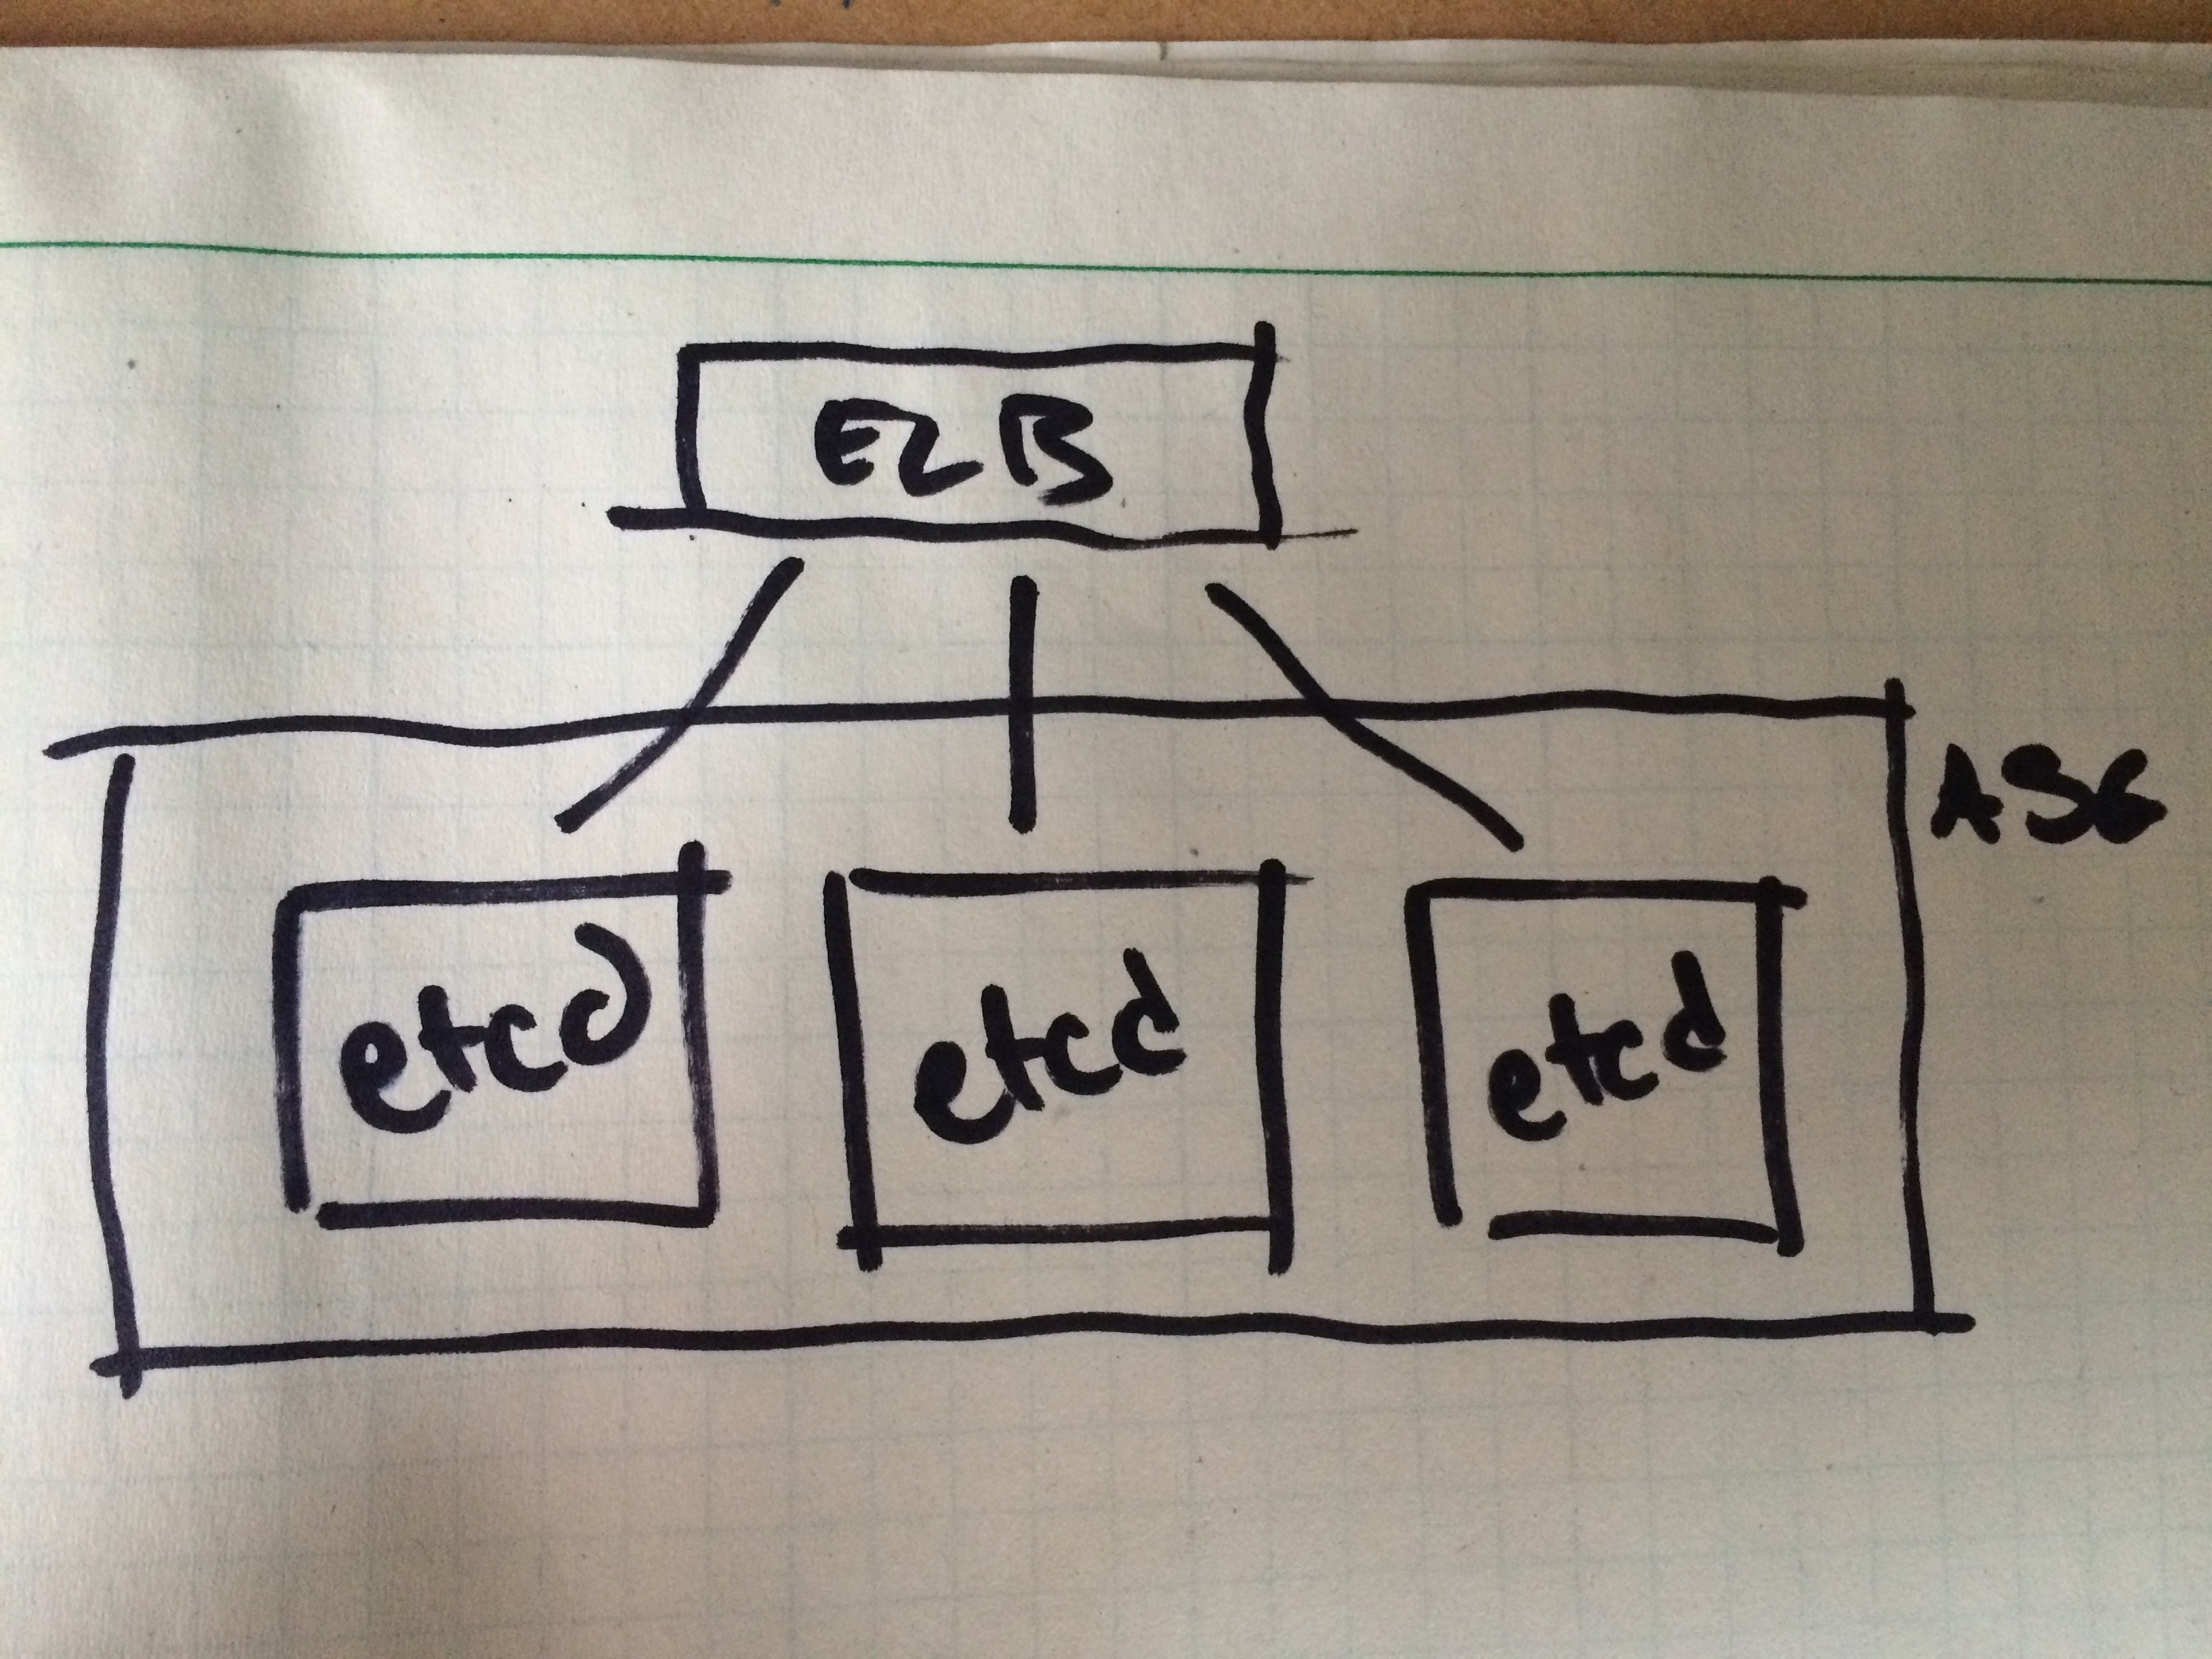 ELB
ASG
etcd etcd etcd